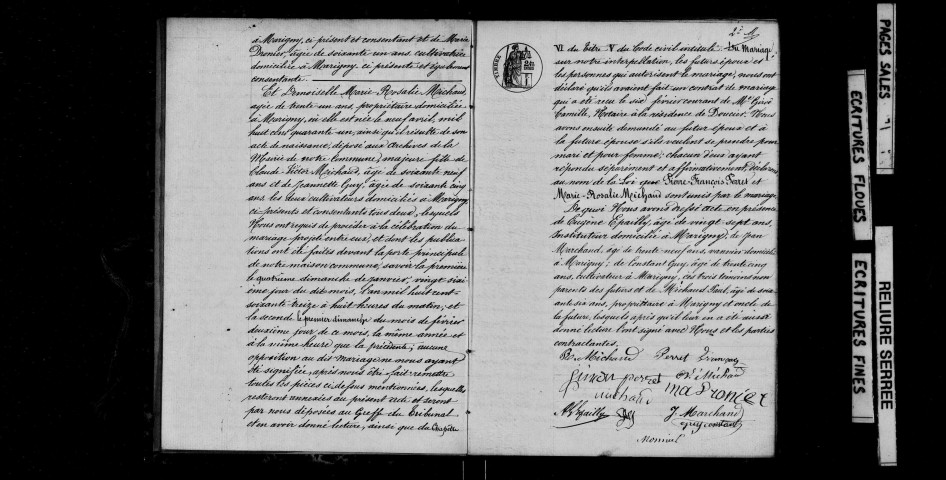 à Marigny, ci présent et consentant et de Marie
Dronier, âgée de soixante un ans, cultivatrice
domiciliée à Marigny, ci présente et également
consentante.
Et Demoiselle Marie-Rosalie Michaud,
agée de trente un ans, propriétaire domiciliée
à Marigny, où elle est née le neuf avril, mil
huit cent quarante un, ainsi qu'il résulte de son
acte de naissance, déposé aux archives de la
Mairie de notre Commune, majeure fille de
Claude-Victor Michaud, âgé de soixante neuf
ans et de Jeannette Guy, âgée de soixante cinq
ans, les deux cultivateurs domiciliés à Marigny
ci-présents et consentants tous deux, lesquels
Nous ont requis de procéder à la célébration du
mariage projeté entre eux, et dont les publica
tions ont été faites devant la porte principale
de notre maison commune, savoir la première
le quatrième dimanche de janvier, vingt-sixi
ème jour du dit mois, l'an mil huit cent
soixante-treize à huit heures du matin, et
la seconde le premier dimanche du mois de février
deuxième jour de ce mois, la même année et
à la même heure que la précédente; aucune
opposition au dit mariage ne nous ayant
été signifiée, après nous être fait remettre
toutes les pièces ci-dessus mentionnées, lesquelles
resteront annexées au présent redi et seront
par nous déposées au Greffe du Tribunal
et en avoir donné lecture, ainsi que du Chapitre
2e M
TIMBRE
VI du Titre V du Code civil intitulé: Du Mariage,
sur notre interpellation, les futurs époux et
les personnes qui autorisent le mariage, nous ont
déclaré qu'ils avaient fait un contrat de mariage
qui a été reçu le six février courant de Me
Camille, Notaire à la résidence de Doucier. Nous
avons ensuite demandé au futur époux et à
la future épouse s'ils veulent se prendre pour
mari et pour femme; chacun d'eux ayant
répondu séparément et affirmativement, déclarons
au nom de la Loi que Pierre François Perret et
Marie-Rosalie Michaud sont unis par le mariage.
De quoi Nous avons dressé acte en présence
de Eugène Epailly, âgé de vingt-sept ans,
Instituteur domicilié à Marigny; de Jean
Marchand, âgé de trente neuf ans, vannier domicilié
à Marigny; de Constant Guy, âgé de trente cinq
ans, cultivateur à Marigny, ces trois témoins non
parents des futurs et de Michaud Paul, âgé de soix
ante six ans, propriétaire à Marigny et oncle de
la future, lesquels après qu'il leur en a été aussi
donné lecture l'ont signé avec Nous et les parties
contractantes.
Michaud Perret François
perret Vr Michaud
michaud ma Dronier
Epailly J Marchand
guy constant
PAGES SALES
ECRITURES FLOUES
ECRITURES FINES
RELIURE SERREE